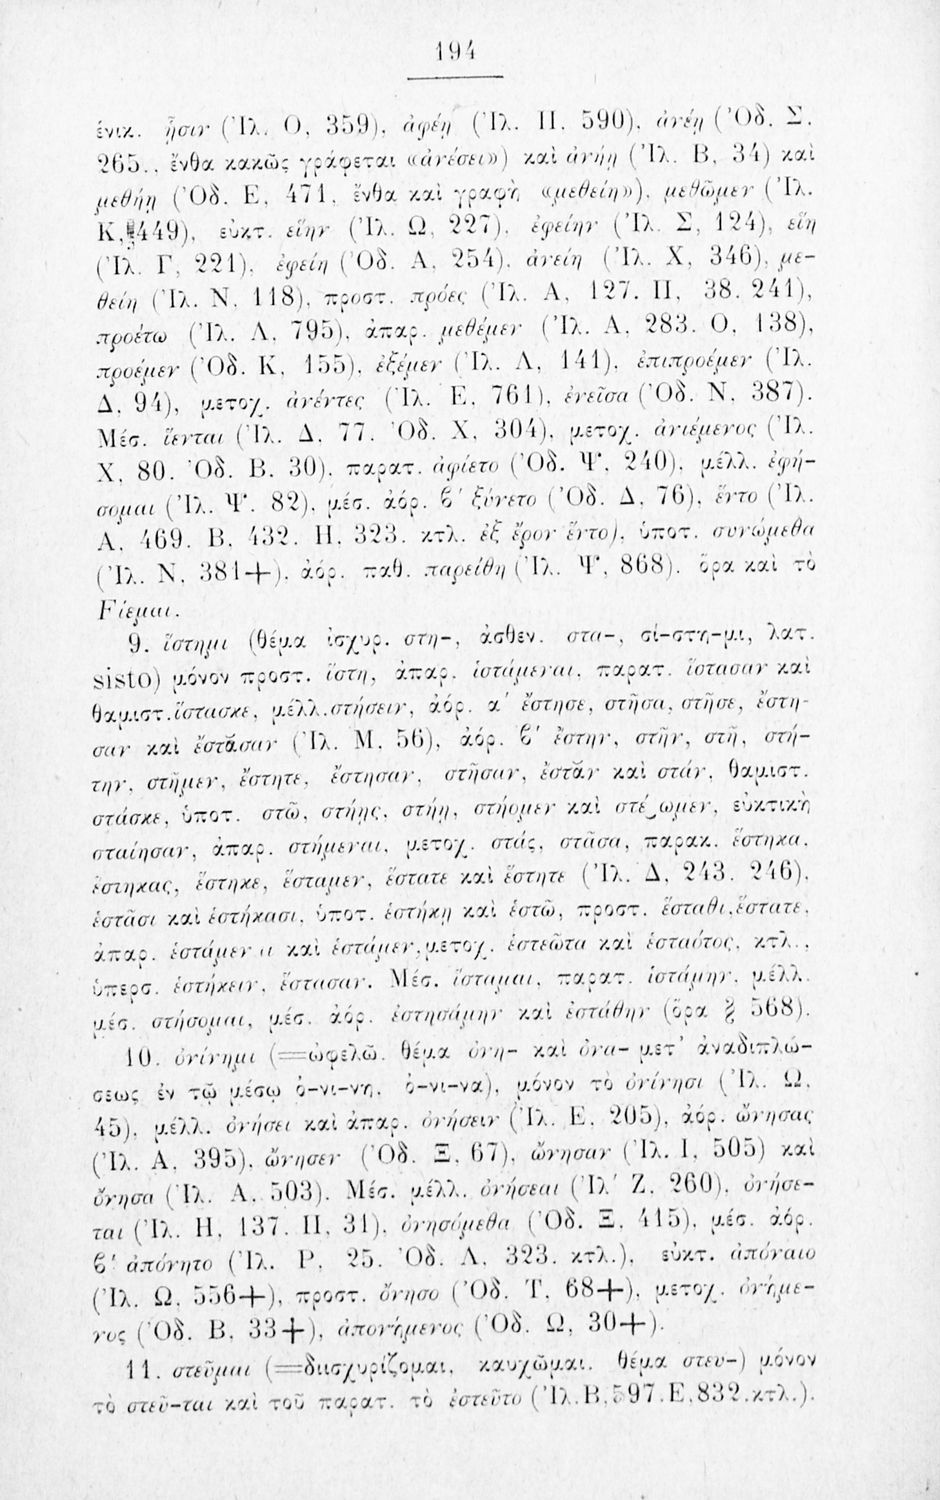 194
ἑνικ. ᾗσιν (Ἰλ. Ο, 359), ἀφέῃ (Ἰλ. Π. 590), ἀνέῃ (Ὀδ. Σ.
265., ἔνθα κακῶς γράφεται «ἀνέσει») καὶ ἀνήῃ (Ἰλ. Β, 34) καὶ
μεθήῃ (Ὀδ. Ε, 471, ἔνθα καὶ γραφὴ «μεθείη»), μεθῶμεν (Ἰλ.
Κ, 449), εὐκτ. εἵην (Ἰλ. Ω, 227), ἐφείην (Ἰλ. Σ, 124), εἵη
(Ἰλ. Γ, 221), ἐφείη (Ὀδ. Α, 254), ἀνείη (Ἰλ. Χ, 346), με-
θείη (Ἰλ. Ν, 118), προστ. πρόες (Ἰλ. Α, 127. Π, 38. 241),
προέτω (Ἰλ. Λ, 795), ἀπαρ. μεθέμεν (Ἰλ. Α, 283. Ο, 138),
προέμεν (Ὀδ. Κ, 155), ἐξέμεν (Ἰλ. Λ, 141), ἐπιπροέμεν (Ἰλ.
Δ, 94), μετοχ. ἀνέντες (Ἰλ. Ε, 761), ἐνεῖσα (Ὀδ. Ν, 387).
Μέσ. ἵενται (Ἰλ. Δ, 77. Ὀδ. Χ, 304), μετοχ. ἀνιέμενος (Ἰλ.
Χ, 80. Ὀδ. Β. 30), παρατ. ἀφίετο (Ὀδ. Ψ, 240), μέλλ. ἐφή-
σομαι (Ἰλ. Ψ, 82), μέσ. ἀόρ. β΄ ξύνετο (Ὀδ. Δ, 76), ἕντο (Ἰλ.
Α, 469. Β, 432. Η, 323. κτλ. ἐξ ἔρον ἕντο), ὑποτ. συνώμεθα
(Ἰλ. Ν, 381+), ἀόρ. παθ. παρείθη (Ἰλ. Ψ, 868). ὅρα καὶ τὸ
Fίεμαι.
9. ἵστημι (θέμα ἰσχυρ. στη-, ἀσθεν. στα-, σί-στη-μι, λατ.
sisto) μόνον προστ. ἵστη, ἀπαρ. ἱστάμεναι, παρατ. ἵστασαν καὶ
θαμιστ. ἵστασκε, μέλλ. στήσειν, ἀόρ. α΄ ἔστησε, στῆσα, στῆσε, ἔστη-
σαν καὶ ἔστᾰσαν (Ἰλ. Μ, 56), ἀόρ. β΄ ἔστην, στῆν, στῆ, στή-
την, στῆμεν, ἔστητε, ἔστησαν, στῆσαν, ἔστᾰν καὶ στάν, θαμιστ.
στάσκε, ὑποτ. στῶ, στήῃς, στήῃ, στήομεν καὶ στέ‿ωμεν, εὐκτικὴ
σταίησαν, ἀπαρ. στήμεναι, μετοχ. στάς, στᾶσα, παρακ. ἕστηκα,
ἕστηκας, ἕστηκε, ἕσταμεν, ἕστατε καὶ ἕστητε (Ἰλ. Δ, 243. 246),
ἑστᾶσι καὶ ἑστήκασι, ὑποτ. ἑστήκῃ καὶ ἑστῶ, προστ. ἕσταθι, ἕστατε,
ἀπαρ. ἑστάμεναι καὶ ἑστάμεν, μετοχ. ἑστεῶτα καὶ ἑσταότος, κτλ.,
ὑπερσ. ἑστήκειν, ἕστασαν. Μέσ. ἵσταμαι, παρατ. ἱστάμην, μέλλ.
μέσ. στήσομαι, μέσ. ἀόρ. ἐστησάμην καὶ ἐστάθην (ὅρα § 568).
10. ὀνίνημι (=ὠφελῶ. θέμα ὀνη- καὶ ὀνα- μετ’ ἀναδιπλώ-
σεως ἐν τῷ μέσῳ ὀ-νι-νη, ὀ-νι-να), μόνον τὸ ὀνίνησι (Ἰλ. Ω,
45), μέλλ. ὀνήσει καὶ ἀπαρ. ὀνήσειν (Ἰλ. Ε, 205), ἀόρ. ὤνησας
(Ἰλ. Α, 395), ὤνησεν (Ὀδ. Ξ, 67), ὤνησαν (Ἰλ. Ι, 505) καὶ
ὄνησα (Ἰλ. Α, 503). Μέσ. μέλλ. ὀνήσεαι (Ἰλ΄ Ζ, 260), ὀνήσε-
ται (Ἰλ. Η, 137. Π, 31), ὀνησόμεθα (Ὀδ. Ξ, 415), μέσ. ἀόρ.
β΄ ἀπόνητο (Ἰλ. Ρ, 25. Ὀδ. Λ, 323. κτλ.), εὐκτ. ἀπόναιο
(Ἰλ. Ω, 556+), προστ. ὄνησο (Ὀδ. Τ, 68+), μετοχ. ὀνήμε-
νος (Ὀδ. Β, 33+), ἀπονήμενος (Ὀδ. Ω, 30+).
11. στεῦμαι (=διισχυρίζομαι, καυχῶμαι. θέμα στευ-) μόνον
τὸ στεῦ-ται καὶ τοῦ παρατ. τὸ ἐστεῦτο (Ἰλ. Β, 597. Ε, 832. κτλ.).